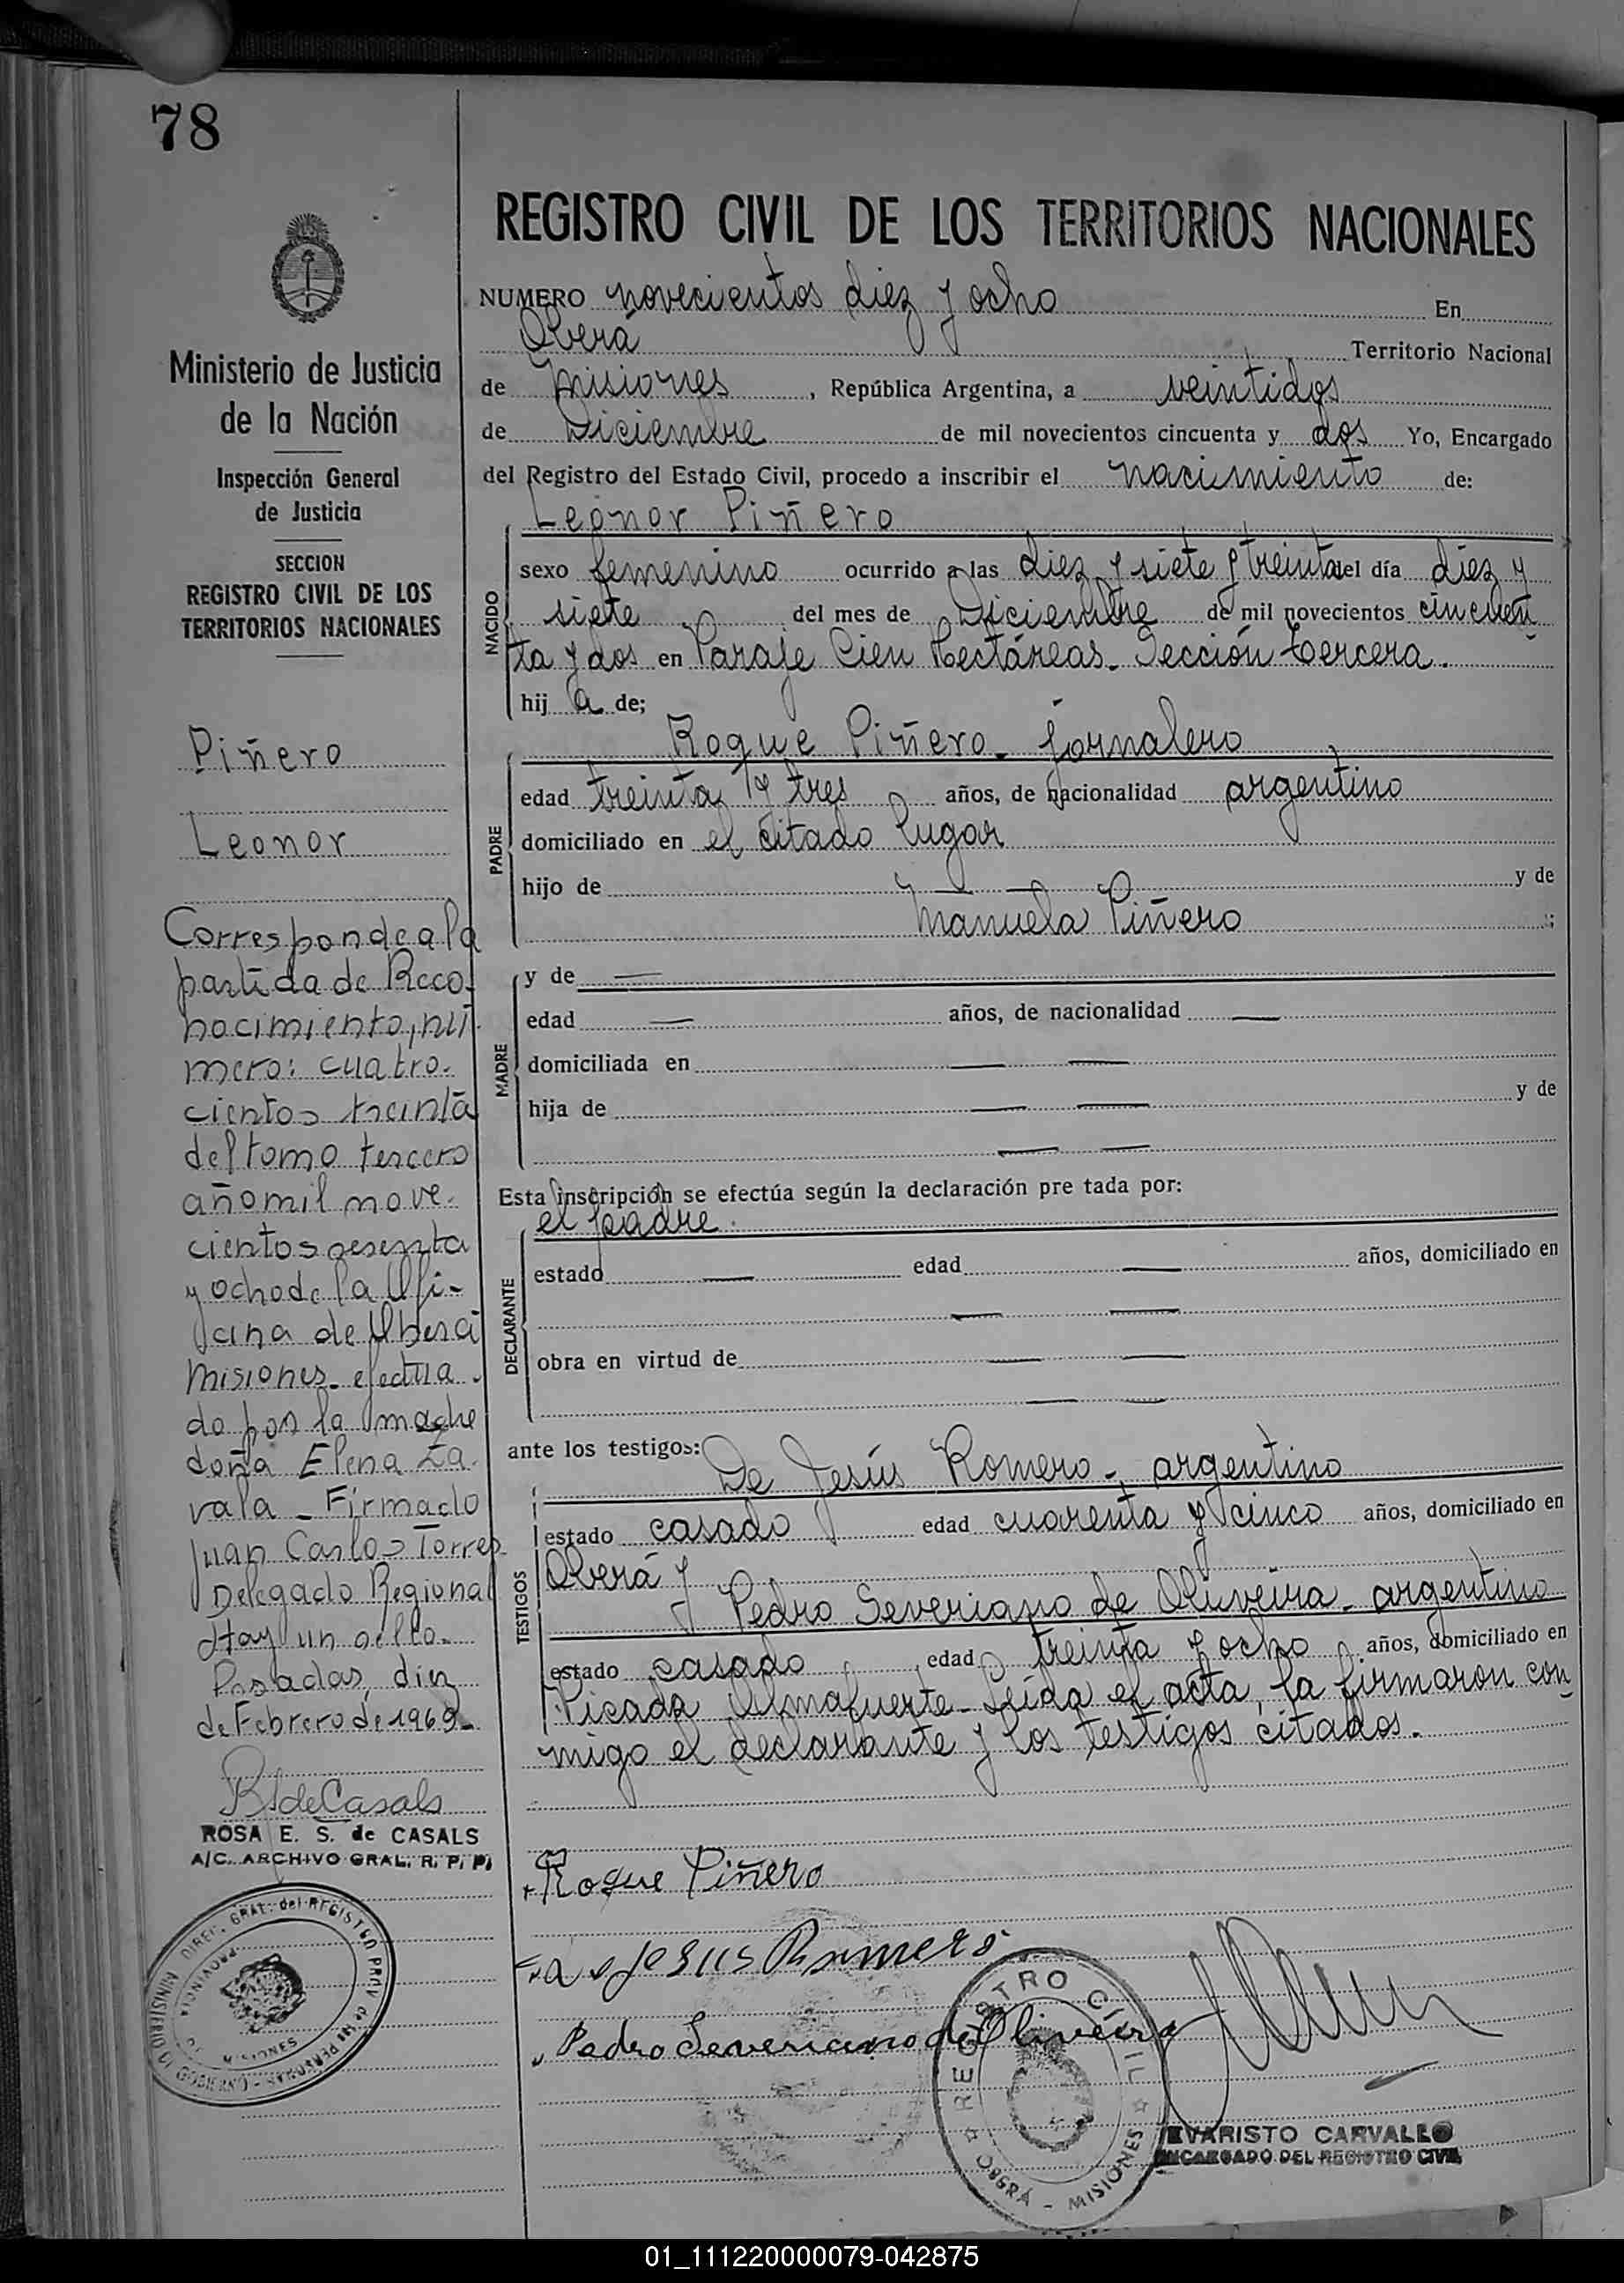 78
Ministerio de Justicia
de la Nación
Inspección General
de Justicia
SECCION
REGISTRO CIVIL DE LOS
TERRITORIOS NACIONALES
Piñero
Leonor
Corresponde a la
partida de Reco-
nocimiento, nú-
mero: cuatro-
cientos treinta
del tomo tercero
año mil nove-
cientos sesenta
y ocho de la Ofi-
cina de Oberá
Misiones. efectua-
do por la madre
doña Elena Za-
vala - Firmado
Juan Carlos Torres
Delegado Regional
Hay un sello.
Posadas, diez
de Febrero de 1969.
R S de Casals
ROSA E. S. de CASALS
A/C. ARCHIVO GRAL. R. P. P.
DIREC. GRAL. del REGISTRO PROV. de las PERSONAS
MINISTERIO D GOBIERNO
PROVINCIA D MISIONES
REGISTRO CIVIL DE LOS TERRITORIOS NACIONALES
NUMERO novecientos diez y ocho En
Oberá Territorio Nacional
de Misiones, República Argentina, a veintidos
de Diciembre de mil novecientos cincuenta y dos Yo, Encargado
del Registro del Estado Civil, procedo a inscribir el nacimiento de:
Leonor Piñero
NACIDO
sexo femenino ocurrido a las diez y siete y treinta del día diez y
siete del mes de Diciembre de mil novecientos cincuen
ta y dos en Paraje Cien Hectáreas. Sección tercera.
hij a de;
Roque Piñero - jornalero
PADRE
edad treinta y tres años, de nacionalidad argentino
domiciliado en el citado lugar
hijo de y de
Manuela Piñero ;
MADRE
y de —
edad — años, de nacionalidad —
domiciliada en — —
hija de — — y de
— —
Esta inscripción se efectúa según la declaración pre tada por:
el padre.
DECLARANTE
estado — edad — años, domiciliado en
— —
obra en virtud de — —
— —
ante los testigos:
De Jesús Romero -, argentino
TESTIGOS
estado casado edad cuarenta y cinco años, domiciliado en
Oberá y
Pedro Severiano de Oliveira - argentino
estado casado edad treinta y ocho años, domiciliado en
Picada Almafuerte - Leída el acta, la firmaron con
migo el declarante y los testigos citados.
Roque Piñero
Jesus Romero
Pedro Severiano de Oliveira
REGISTRO CIVIL
OBERÁ - MISIONES
EVARISTO CARVALLO
ENCARGADO DEL REGISTRO CIVIL
01_111220000079-042875